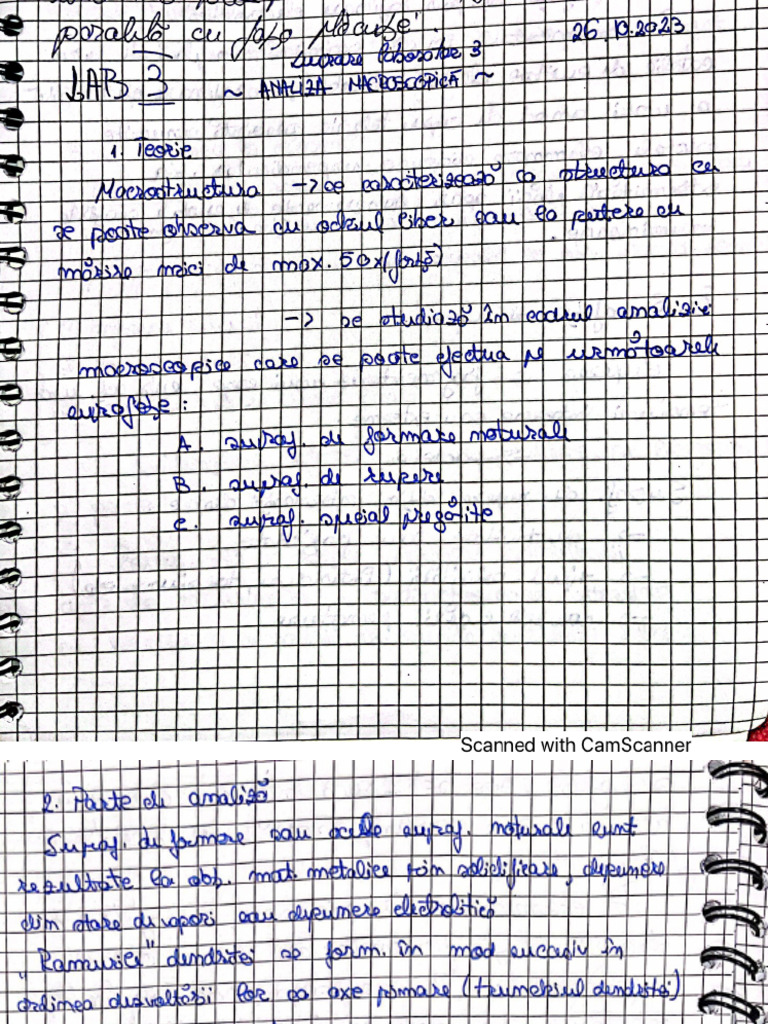 paralelă cu
26.10.2023
Lucrare laborator 3
LAB 3
~ ANALIZA MACROSCOPICĂ ~
1. Teorie
Macrostructura -> se caracterizează ca structura ce
se poate observa cu ochiul liber sau la putere cu
mărire mici de max. 50x
-> se studiază în cadrul analizei
macroscopice care se poate efectua pe următoarele
suprafețe:
A. supraf. de formare naturale
B. supraf. de rupere
C. supraf. special pregătite
Scanned with CamScanner
2. Parte de analiză
Supraf. de formare sau acele supraf. naturale sunt
rezultate la ob. mat. metalice prin solidificare, depunere
din stare de vapori sau depunere electrolitică
„Ramurile" dendritei se form. în mod succesiv în
ordinea dezvoltării lor ca axe primare (trunchiul dendritei)